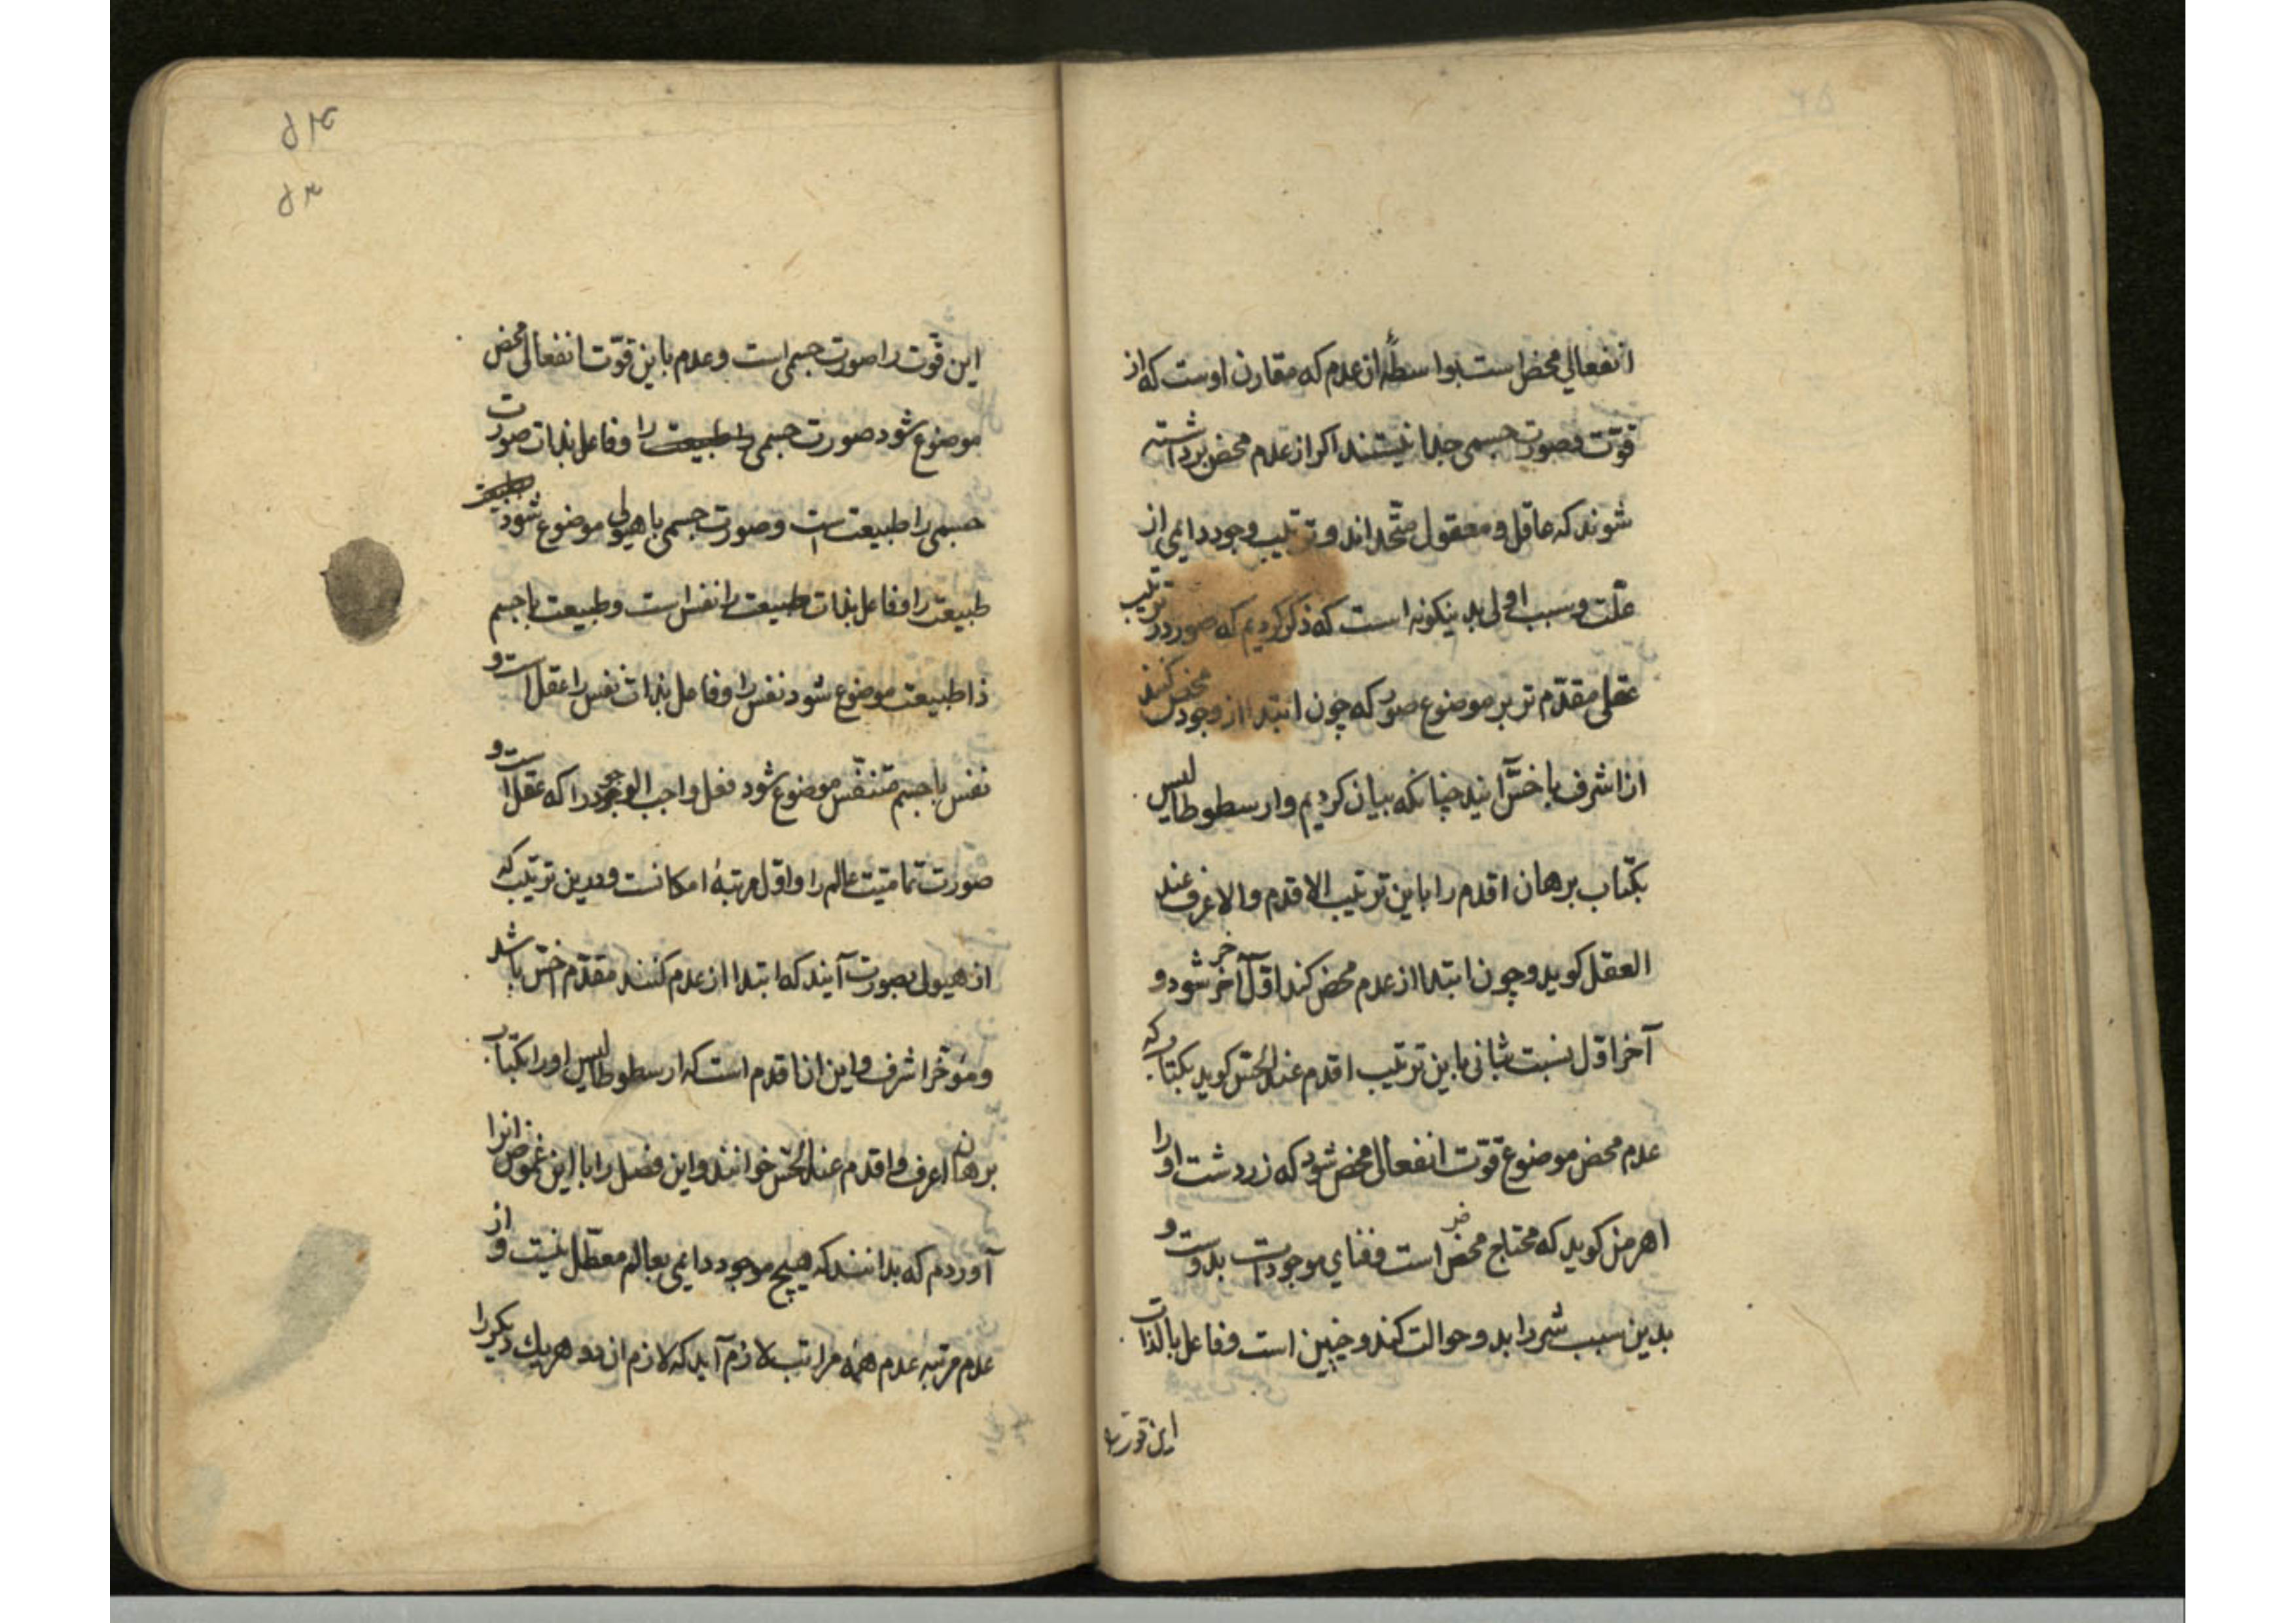 انفعالی محض است بواسطهٔ ان عدم که مقارن اوست که از
قوّت و صورت جسمی جدا نیستند اکر از عدم محض برداشته
شوند که عاقل و معقول متّحداند و ترتیب وجود دایمی از
علّت و سبب اولی بدینکونه است که ذکر کردیم که صور در ترتیب
عقلی مقدّم تر بر موضوع صور که چون ابتدا از وجود محض کنند
از اشرف باخسّ آیند چنانکه بیان کردیم و ارسطوطالیس
بکتاب برهان اقدم را باین ترتیب الاقدم والاعرف عند
العقل کوید و چون ابتدا از عدم محض کند اوّل آخر شود و
آخر اوّل نسبت ثانی باین ترتیب اقدم عند الحسّ کوید بکتاب که
عدم محض موضوع قوّت انفعالی محض شود که زردشت او را
اهرمن کوید که محتاج محض است و فنای موجودات بدوست و
بدین سبب شر را بدو حوالت کند و چنین است و فاعل بالذات
این قوت را
این قوّت را صورت جسمی است و عدم باین قوّت انفعالی محض
موضوع شود صورت جسمی را و فاعل بذات صورت
جسمی را طبیعت است و صورت جسمی با هیولی موضوع شود
طبیعت را و فاعل بذات طبیعت را نفس است و طبیعت با جسم
ذا طبیعت موضوع شود نفس را و فاعل بذات نفس را عقل است و
نفس با جسم متنفّس موضوع شود فعل واجب الوجود را که عقل است و
صورت تمامیّت عالم را و اوّل مرتبهٔ امکانست و درین ترتیب که
از هیولی بصورت آیند که ابتدا از عدم کنند مقدّم اخسّ باشد
و مؤخّر اشرف و این ان اقدم است که ارسطوطالیس او را بکتاب
برهان اعرف و اقدم عند الحسّ خوانند و این فصل را با این غموض ازانرا
آوردم که بدانند که هیچ موجود دایمی بعالم معطّل نیست و از
عدم مرتبه عدم همه مراتب لازم آید که لازم اند هر یک دیکر را